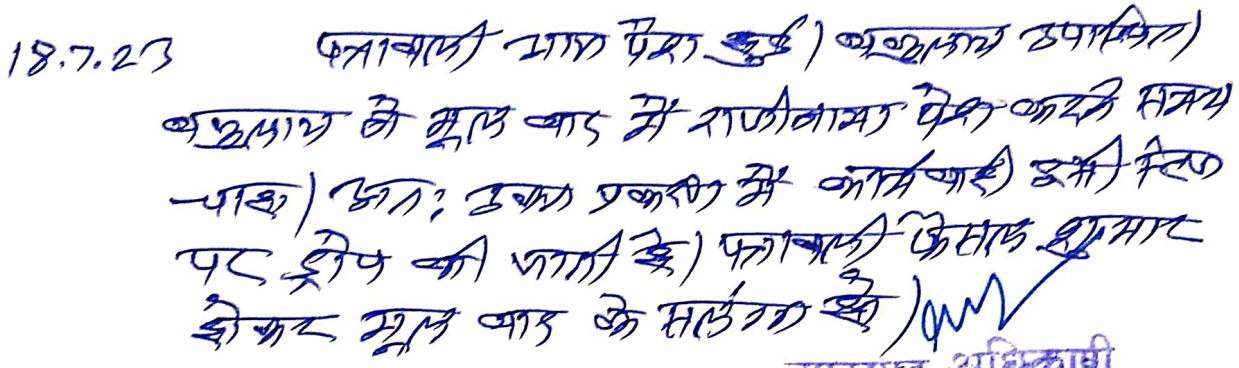 18.7.23 पत्रावली आज पेश हुई। वकुलाय उपस्थित।
वकुलाय ने मूल वाद में राजीनामा पेश करने समय
चाहा। अतः उक्त प्रकरण में कार्यवाही इसी स्टेज
पर ड्रोप की जाती है। पत्रावली फैसल शुमार
होकर मूल वाद के सलंग्न रहे।
अधिकारी